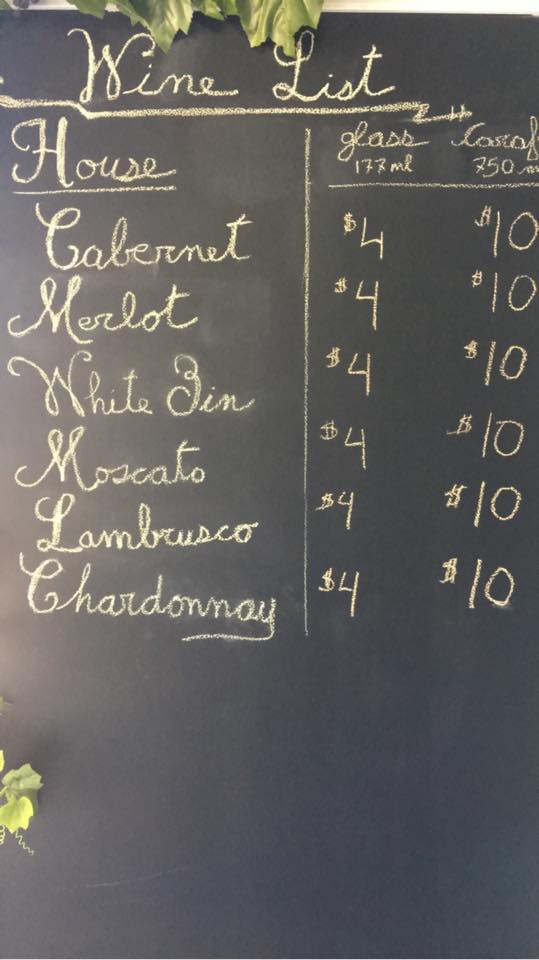 Wine List
House glass Caraf
177ml 750 m
Cabernet $4 $10
Merlot $4 $10
White Zin $4 $10
Moscato $4 $10
Lambrusco $4 $10
Chardonnay $4 $10